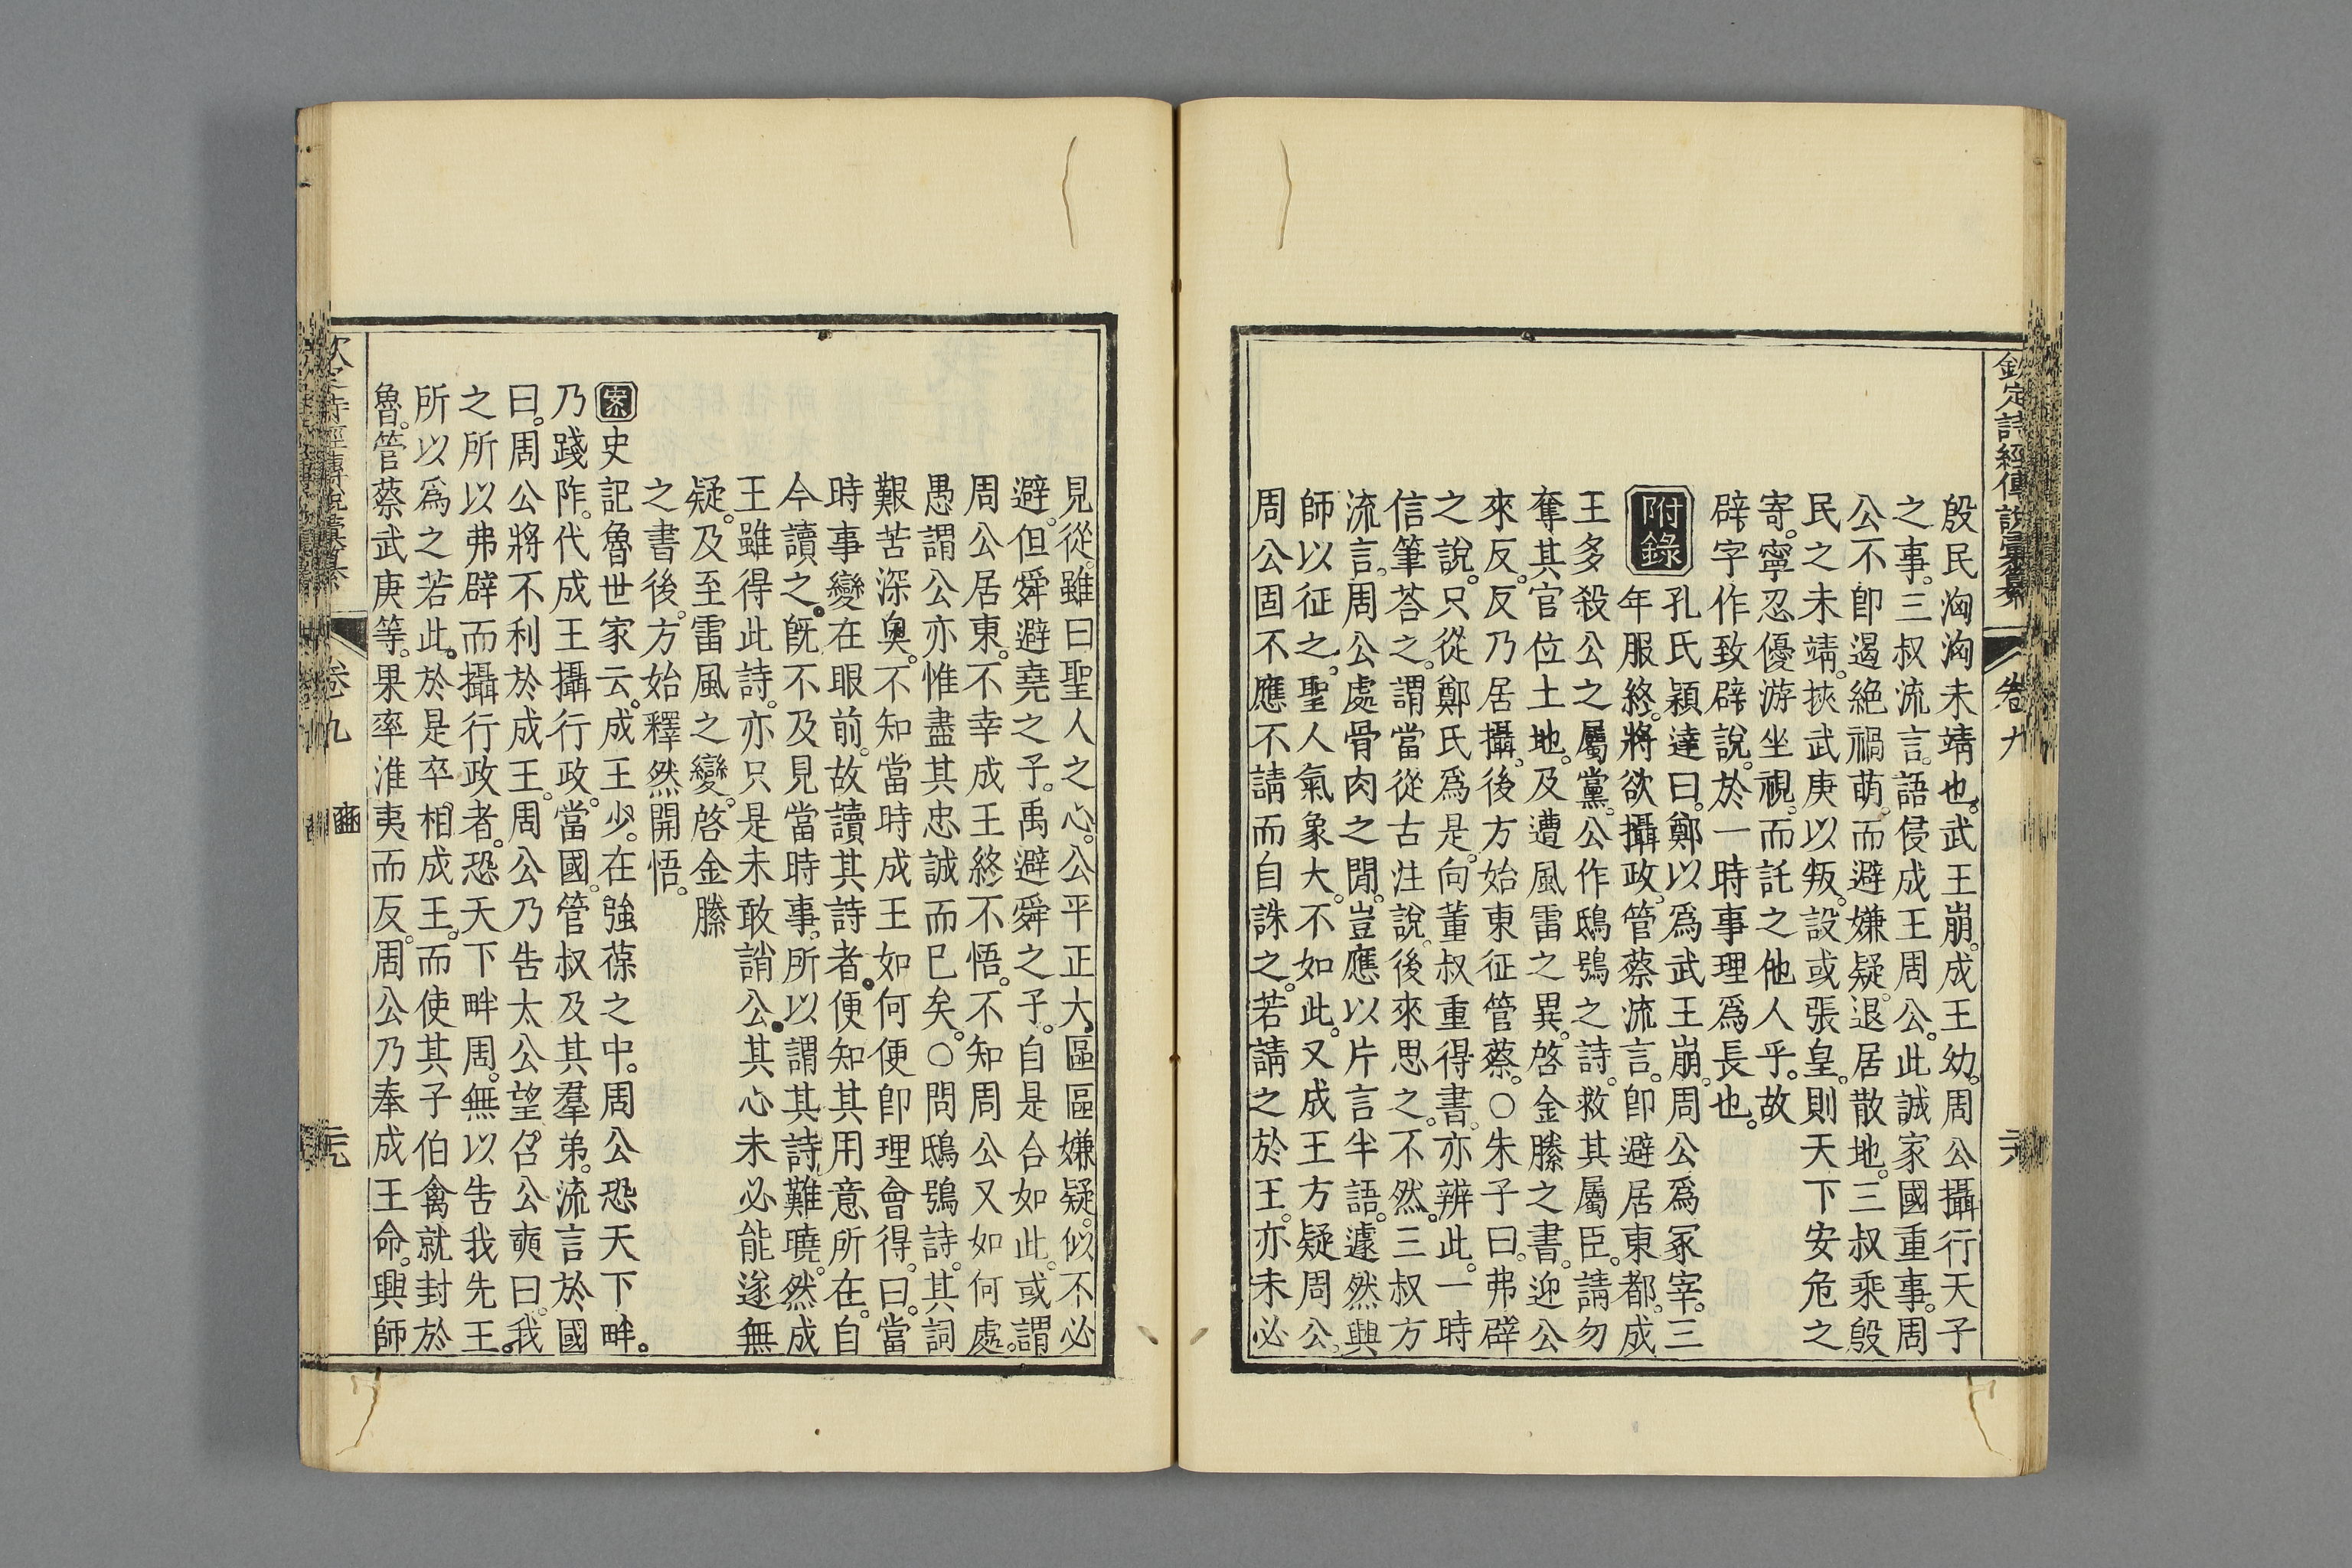 欽定詩經傳說彙纂 卷九
殷民洶洶未靖也。武王崩。成王幼。周公攝行天子
之事。三叔流言。語侵成王周公。此誠家國重事。周
公不卽遏絕禍萌。而避嫌疑。退居散地。三叔乘殷
民之未靖。挾武庚以叛。設或張皇。則天下安危之
寄。寧忍優游坐視。而託之他人乎。故
辟字作致辟說。於一時事理爲長也。
附錄孔氏穎達曰。鄭以爲武王崩。周公爲冢宰。三
年服終。將欲攝政。管蔡流言。卽避居東都。成
王多殺公之屬黨。公作鴟鴞之詩。救其屬臣。請勿
奪其官位土地。及遭風雷之異。啓金縢之書。迎公
來反。反乃居攝。後方始東征管蔡。○朱子曰。弗辟
之說。只從鄭氏爲是。向董叔重得書。亦辨此。一時
信筆荅之。謂當從古注說。後來思之。不然。三叔方
流言。周公處骨肉之閒。豈應以片言半語。遽然興
師以征之。聖人氣象大。不如此。又成王方疑周公。
周公固不應不請而自誅之。若請之於王。亦未必
見從。雖曰聖人之心。公平正大。區區嫌疑。似不必
避。但舜避堯之子。禹避舜之子。自是合如此。或謂
周公居東。不幸成王終不悟。不知周公又如何處。
愚謂公亦惟盡其忠誠而已矣。○問鴟鴞詩。其詞
艱苦深奧。不知當時成王如何便卽理會得。曰。當
時事變在眼前。故讀其詩者。便知其用意所在。自
今讀之。旣不及見當時事。所以謂其詩難曉。然成
王雖得此詩。亦只是未敢誚公。其心未必能遂無
疑。及至雷風之變。啓金縢
之書後。方始釋然開悟。
案史記魯世家云。成王少。在強葆之中。周公恐天下畔。
乃踐阼。代成王攝行政。當國。管叔及其羣弟。流言於國
曰。周公將不利於成王。周公乃告太公望召公奭曰。我
之所以弗辟而攝行政者。恐天下畔周。無以告我先王。
所以爲之若此。於是卒相成王。而使其子伯禽就封於
魯。管蔡武庚等。果率淮夷而反。周公乃奉成王命。興師
卷九 豳